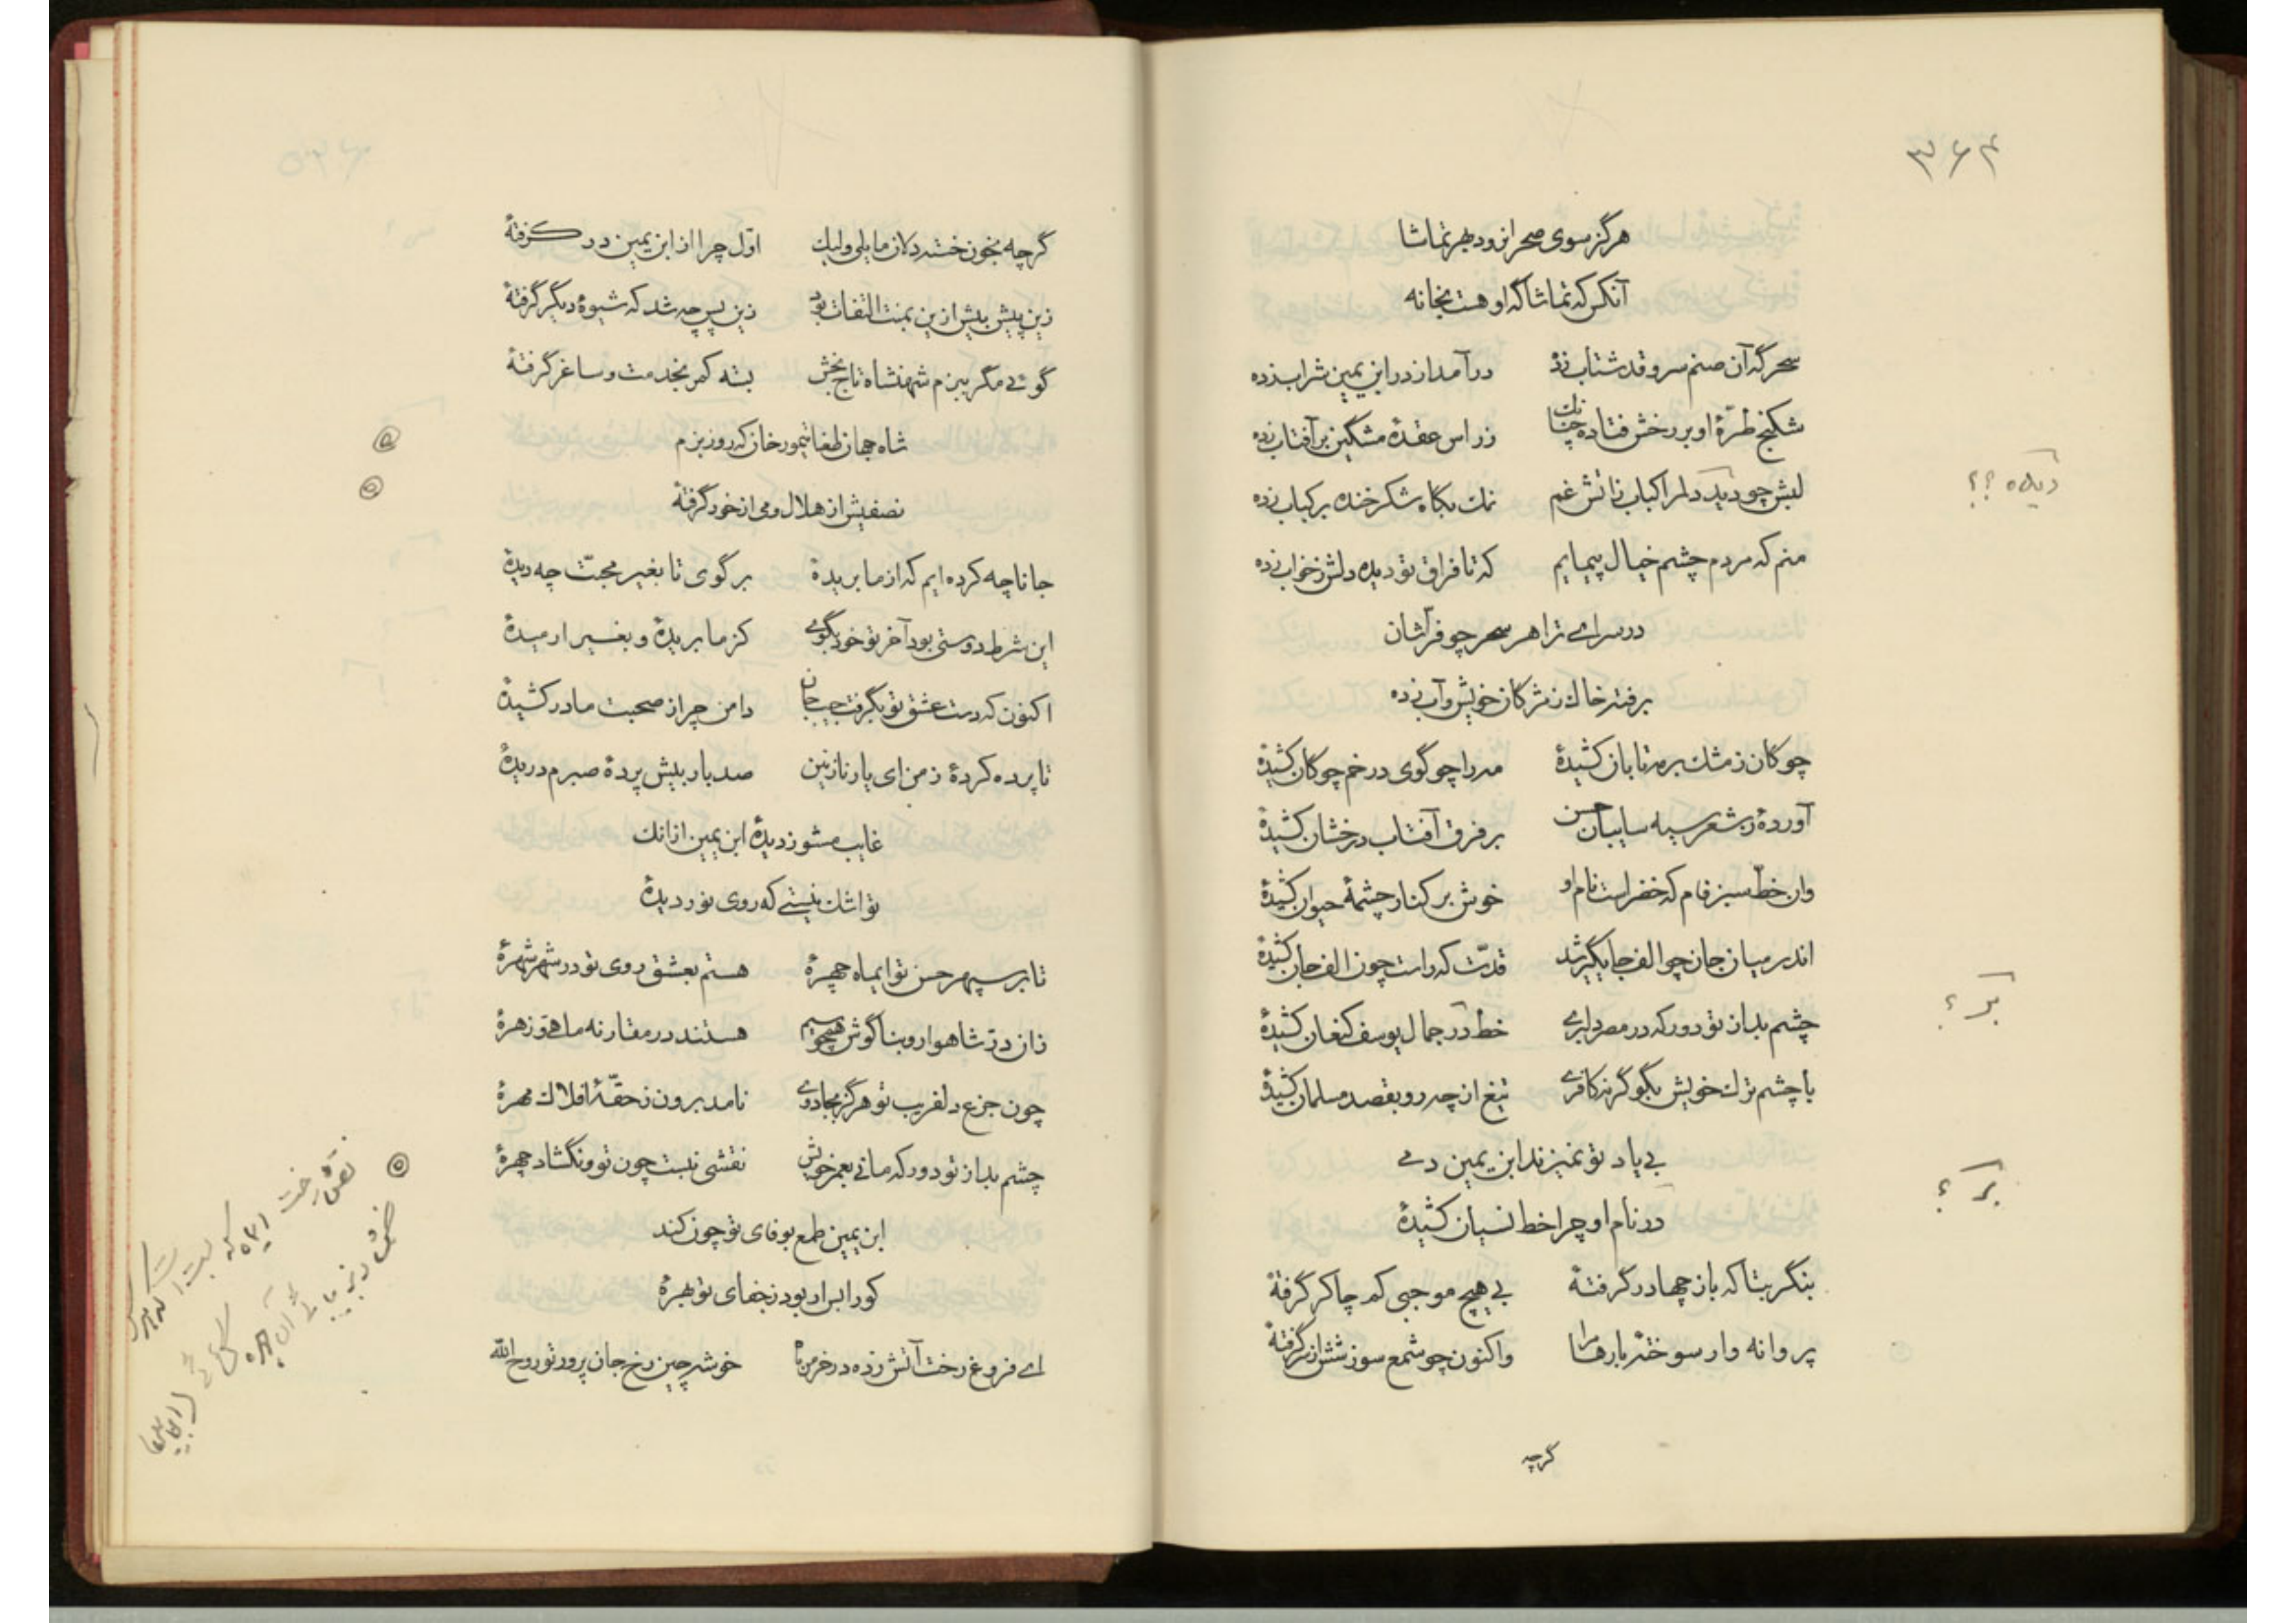 ۳۶۴
هرگز سوی صحرا نرود بهر تماشا
آنکس که تماشاگه او هست بخانه
سحرگه آن صنم سرو قد شتاب زده درآمد از در ابن یمین شراب زده
شکنج طرّهٔ او بر رخش فتاده چنانک زراس عقدهٔ مشکین بر آفتاب زده
لبش چو دید دلم را کباب زآتش غم نمک بگاه شکرخنده بر کباب زده
دیده ؟؟
منم که مردم چشم خیال پیمایم که تا فراق تو دیده دلش ز خواب زده
در سرای ترا هر سحر چو فرّاشان
برفته خاک ز مژگان خویش و آب زده
چوگان ز مشک بر مه تابان کشیدهٔ مه را چو گوی در خم چوگان کشیدهٔ
آوردهٔ ز شعر سیه سایبان حسن بر فرق آفتاب درخشان کشیدهٔ
وان خطّ سبز فام که خضر است نام او خوش بر کنار چشمهٔ حیوان کشیدهٔ
اندر میان جان چو الف جایگیر شد قدّت که راست چون الف جان کشیدهٔ
چشم بد از تو دور که در مصر دلبری خط در جمال یوسف کنعان کشیدهٔ
بر ؟
با چشم ترک خویش بگو گر نه کافری تیغ از چه رو بقصد مسلمان کشیدهٔ
بی یاد تو نمیزند ابن یمین دمی
در نام او چرا خط نسیان کشیدهٔ
بر ؟
بنگر بتا که باز چها در گرفتهٔ بی هیچ موجبی کم چاکر گرفتهٔ
پروانه وار سوختهٔ بارها مرا واکنون چو شمع سوزشش از سر گرفتهٔ
گرچه
گرچه بخون خسته دلان مایلی ولیک اوّل چرا از ابن یمین در گرفتهٔ
زین پیش بیش ازین بمنت التفات بود زین پس چه شد که شیوهٔ دیگر گرفتهٔ
گوئی مگر ببزم شهنشاه تاج بخش بسته کمر بخدمت و ساغر گرفتهٔ
شاه جهان طغا تیمور خان که روز بزم
نصفیش از هلال و می از خور گرفتهٔ
جانا چه کرده ایم که از ما بریدهٔ برگوی تا بغیر محبّت چه دیدهٔ
این شرط دوستی بود آخر تو خود بگوی کز ما بریدهٔ و بغیر ارمیدهٔ
اکنون که دست عشق تو بگرفت جیب جان دامن چرا ز صحبت ما در کشیدهٔ
تا پرده کردهٔ ز من ای یار نازنین صد بار بیش پردهٔ صبرم دریدهٔ
غایب مشو ز دیدهٔ ابن یمین ازانک
تو اشک نیستی که روی نور دیدهٔ
تا بر سپهر حسن تو ایماه چهرهٔ هستم بعشق روی تو در شهر شهرهٔ
زان درّ شاهوار و بناگوش همچو سیم هستند در مقارنه ماهیّ و زهرهٔ
چون جزع دلفریب تو هرگز بجادوی نامد برون ز حقّهٔ افلاک مهرهٔ
چشم بد از تو دور که مانی بعمر خویش نقشی نبست چون تو و نگشاد چهرهٔ
ابن یمین طمع بوفای تو چون کند
کورا بس ار بود ز جفای تو بهرهٔ
ای فروغ رخت آتش زده در خرمن ماه خوشه چین رخ جان پرور تو روح الله